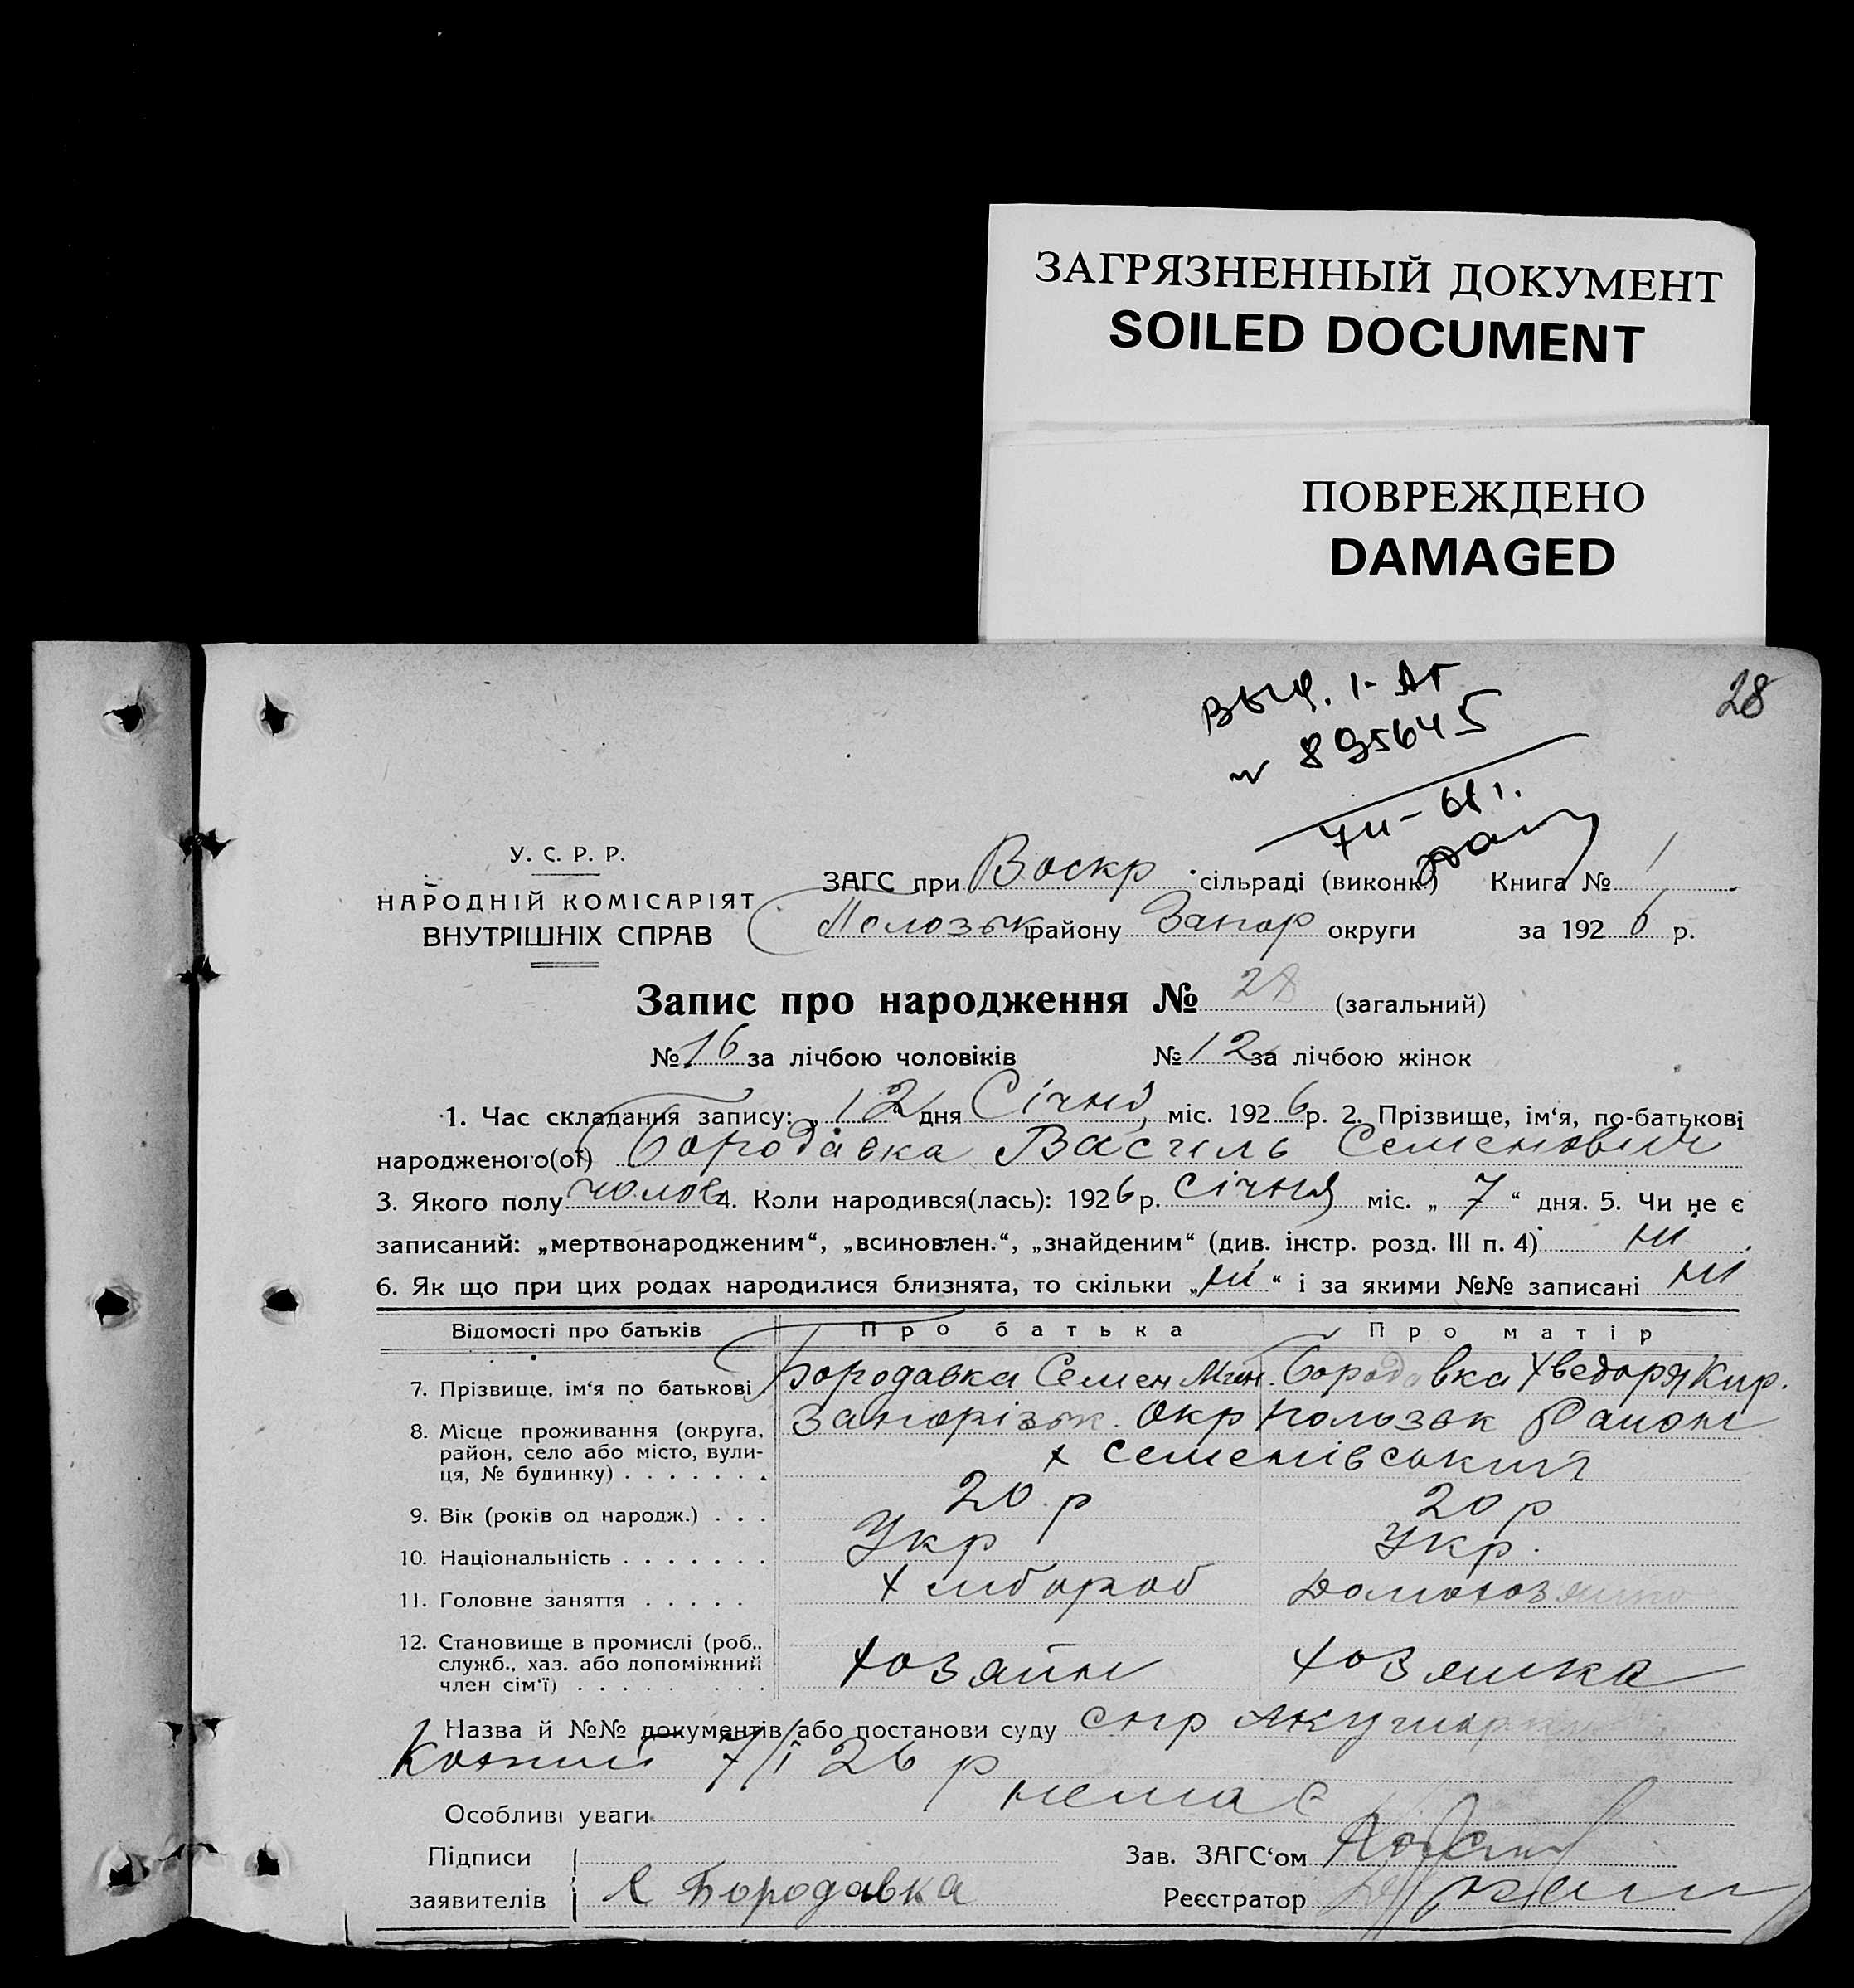 ЗАГРЯЗНЕННЫЙ ДОКУМЕНТ
SOILED DOCUMENT
ПОВРЕЖДЕНО
DAMAGED
28
895645
У. С. Р. Р.
НАРОДНІЙ КОМІСАРІЯТ
ВНУТРІШНІХ СПРАВ
ЗАГС при Воскр сільраді (виконк.) Книга № 1
району Запор округи за 1926 р.
Запис про народження № 28 (загальний)
№ 16 за лічбою чоловіків № 12 за лічбою жінок
1. Час складання запису: 12 дня Січня міс. 1926 р. 2. Прізвище, ім'я, по-батькові
народженого(ої) Бородавка Василь Семенович
3. Якого полу чолов 4. Коли народився(лась): 1926 р. Січня міс. „ 7 “ дня. 5. Чи не є
записаний: „мертвонародженим“, „всиновлен.“, „знайденим“ (див. інстр. розд. III п. 4) ні
6. Як що при цих родах народилися близнята, то скільки „ні“ і за якими №№ записані ні
Відомості про батьків Про батька Про матір
7. Прізвище, ім'я по батькові Бородавка Семен Бородавка Хведоря Кир.
8. Місце проживання (округа, Запорізьк. Окр Район
район, село або місто, вули- х Семенівський
ця, № будинку)
9. Вік (років од народж.) 20 р 20 р
10. Національність Укр Укр.
11. Головне заняття Хлібороб
12. Становище в промислі (роб.,
служб., хаз. або допоміжний Хозяин Хозяйка
член сім'ї)
Назва й №№ документів або постанови суду
7/I 26 р
Особливі уваги немає
Підписи Зав. ЗАГС'ом
заявителів Бородавка Реєстратор